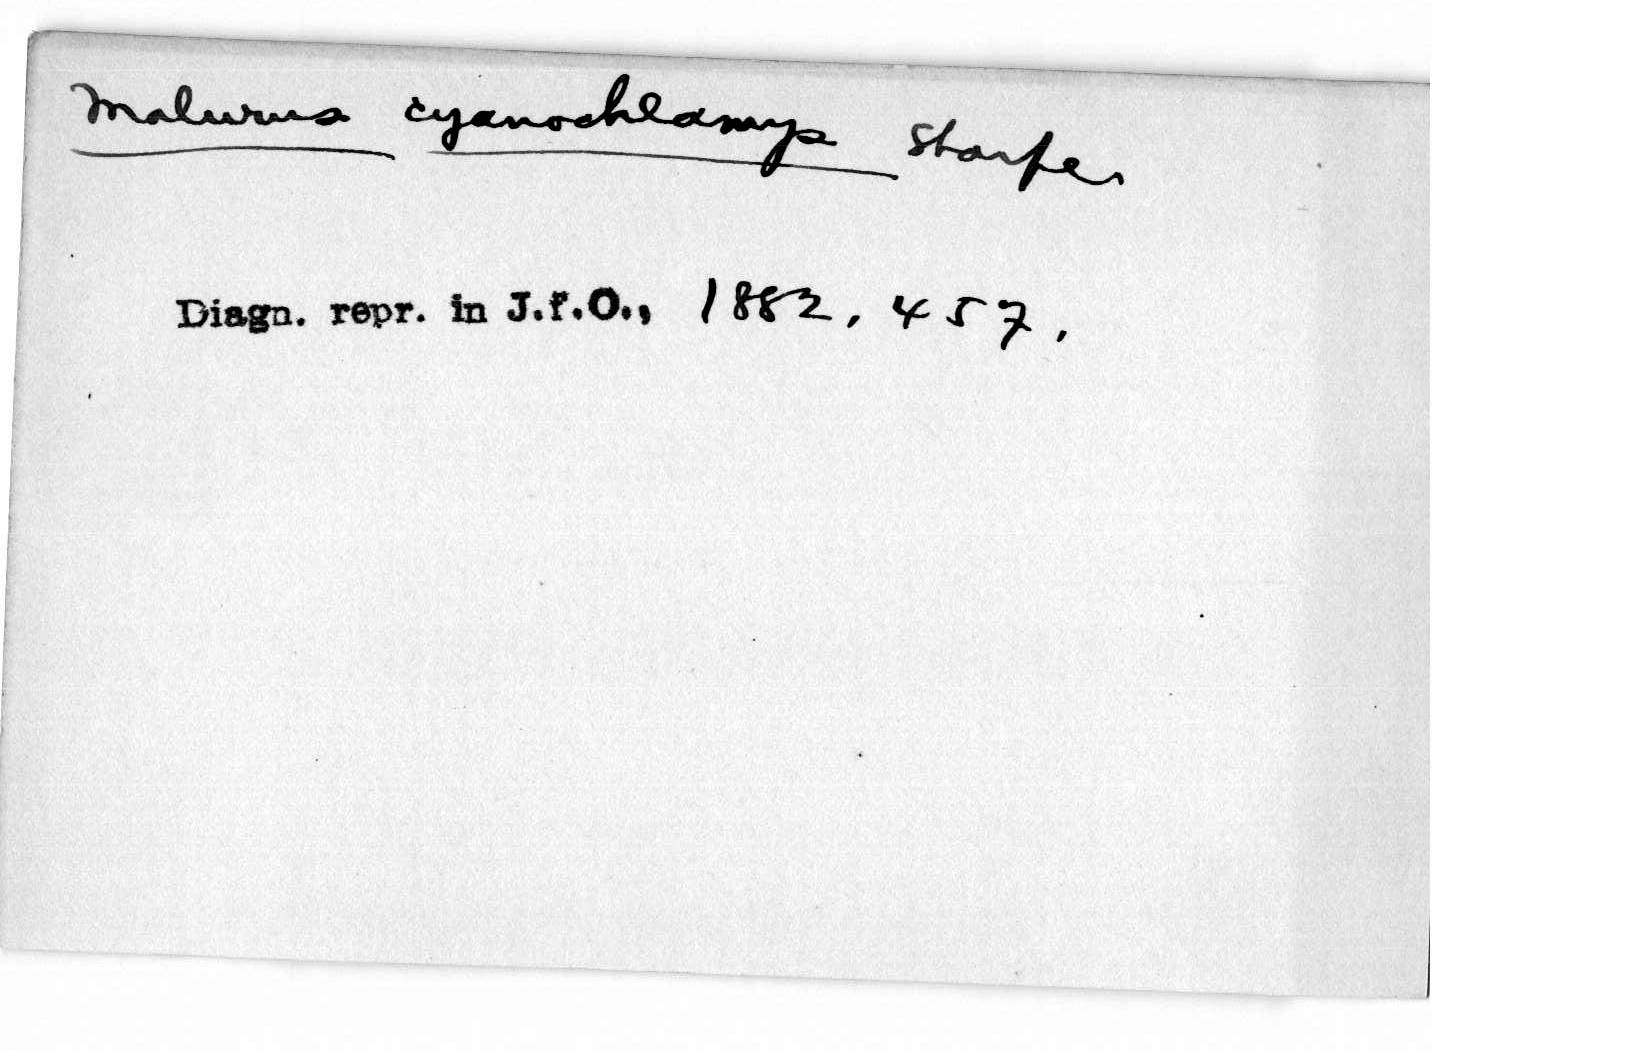 Malurus cyanochlamys Sharpe
Diagn. repr. in J.f.O., 1882, 457.